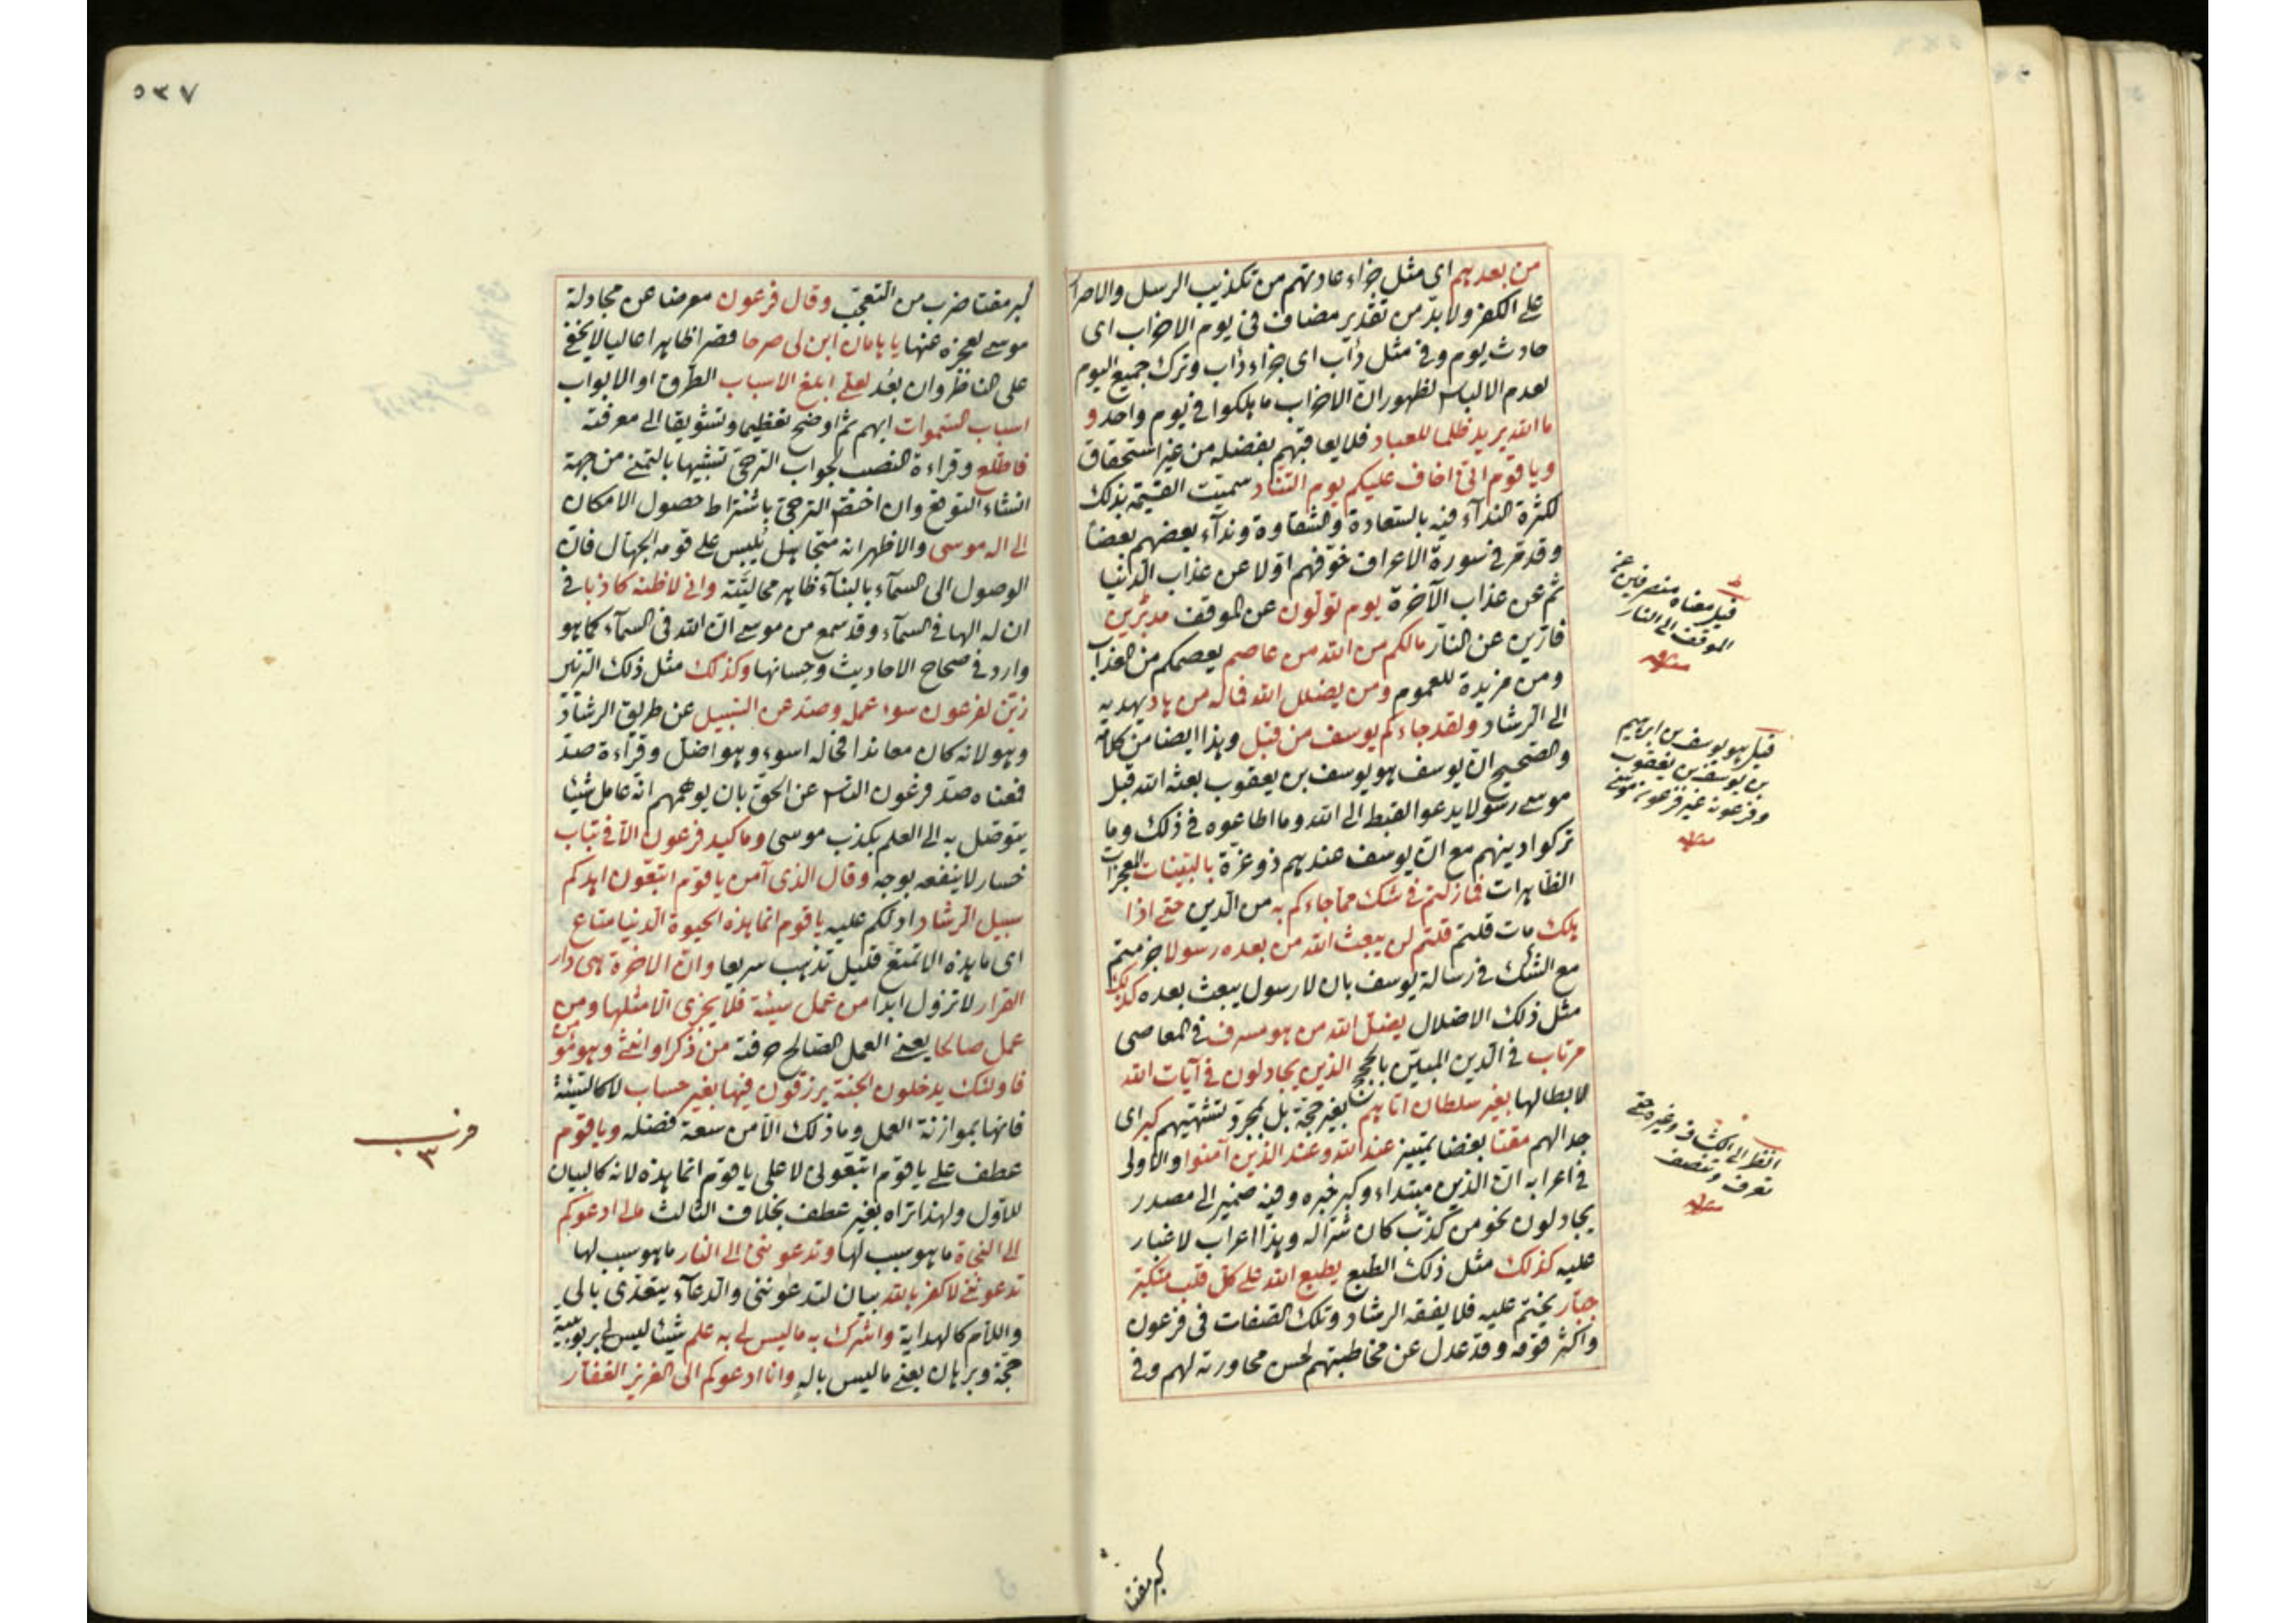 من بعدهم اى مثل جزاء عادتهم من تكذيب الرسل والاصرار
على الكفر ولا بد من تقدير مضاف فى يوم الاحزاب اى
حادث يوم وفى مثل دأب اى جزاء دأب وترك جميع اليوم
لعدم الالباس لظهور ان الاحزاب ما هلكوا فى يوم واحد و
ما الله يريد ظلما للعباد فلا يعاقبهم بفضله من غير استحقاق
ويا قوم انى اخاف عليكم يوم التناد سميت القيمة بذلك
لكثرة النداء فيه بالسعادة والشقاوة ونداء بعضهم بعضا
وقد مر فى سورة الاعراف خوفهم اولا عن عذاب الدنيا
ثم عن عذاب الآخرة يوم تولون عن الموقف مدبرين
فارين عن النار مالكم من الله من عاصم يعصمكم من العذاب
ومن مزيدة للعموم ومن يضلل الله فماله من هاد يهديه
الى الرشاد ولقد جاءكم يوسف من قبل وهذا ايضا من كلامه
والصحيح ان يوسف هو يوسف بن يعقوب بعثه الله قبل
موسى رسولا يدعو القبط الى الله وما اطاعوه فى ذلك وما
تركوا دينهم مع ان يوسف عندهم ذو عزة بالبينات المعجزات
الظاهرات فمازلتم فى شك مما جاءكم به من الدين حتى اذا
هلك مات قلتم قلتم لن يبعث الله من بعده رسولا جزمتم
مع الشك فى رسالة يوسف بان لا رسول يبعث بعده كذلك
مثل ذلك الاضلال يضل الله من هو مسرف فى المعاصى
مرتاب فى الدين المبين بالحجج الذين يجادلون فى آيات الله
لابطالها بغير سلطان اتاهم بغير حجة بل بمجرد تشهيهم كبر اى
جدالهم مقتا بغضا تمييز عند الله وعند الذين آمنوا والاولى
فى اعرابه ان الذين مبتداء وكبر خبره وفيه ضمير الى مصدر
يجادلون نحو من كذب كان شرا له وهذا اعراب لا غبار
عليه كذلك مثل ذلك الطبع يطبع الله على كل قلب متكبر
جبار يختم عليه فلا يفقه الرشاد وتلك الصفات فى فرعون
واكثر قومه وقد عدل عن مخاطبتهم لحسن محاورته لهم وفى
قيل معناه منصرفين عن
الموقف الى النار
منه
قيل هو يوسف بن ابراهيم
بن يوسف بن يعقوب
وفرعونه غير فرعون موسى
منه
انظر الى الكشاف وغيره حتى
تعرف وتنصف
منه
كبر مقتا
٥٣٧
كبر مقتا ضرب من التعجب وقال فرعون معرضا عن مجادلة
موسى لعجزه عنها يا هامان ابن لى صرحا قصرا ظاهرا عاليا لا يخفى
على الناظر وان بعد لعلى ابلغ الاسباب الطرق او الابواب
اسباب السموات ابهم ثم اوضح تعظيما وتشويقا الى معرفته
فاطلع وقراءة النصب لجواب الترجى تشبيها بالتمنى من جهة
انشاء التوقع وان اختص الترجى باشتراط حصول الامكان
الى اله موسى والاظهر انه متجاهل يلبس على قومه الجهال فان
الوصول الى السماء بالبناء ظاهر محاليته وانى لاظنه كاذبا فى
ان له الها فى السماء وقد سمع من موسى ان الله فى السماء كما هو
وارد فى صحاح الاحاديث وحسانها وكذلك مثل ذلك التزيين
زين لفرعون سوء عمله وصد عن السبيل عن طريق الرشاد
وهو لانه كان معاندا فحاله اسوء وهو اضل وقراءة صد
فمعناه صد فرعون الناس عن الحق بان يوهمهم انه عامل شيئا
يتوصل به الى العلم بكذب موسى وما كيد فرعون الا فى تباب
خسار لا ينفعه بوجه وقال الذى آمن يا قوم اتبعون اهدكم
سبيل الرشاد ادلكم عليه يا قوم انما هذه الحيوة الدنيا متاع
اى ما هذه الا تمتع قليل تذهب سريعا وان الاخرة هى دار
القرار لا تزول ابدا من عمل سيئة فلا يجزى الا مثلها ومن
عمل صالحا يعنى العمل الصالح من ذكر او انثى وهو مؤمن
فاولئك يدخلون الجنة يرزقون فيها بغير حساب لا كالسيئة
فانها بموازنة العمل وما ذلك الا من سعة فضله ويا قوم
عطف على يا قوم اتبعونى لا على يا قوم انما هذه لانه كالبيان
للاول ولهذا تراه بغير عطف بخلاف الثالث مالى ادعوكم
الى النجاة ما هو سبب لها وتدعوننى الى النار ما هو سبب لها
تدعوننى لاكفر بالله بيان لتدعوننى والدعاء يتعدى بالى
واللام كالهداية واشرك به ما ليس لى به علم شيئا ليس لى بربوبيته
حجة وبرهان يعنى ما ليس باله وانا ادعوكم الى العزيز الغفار
حزب
٣